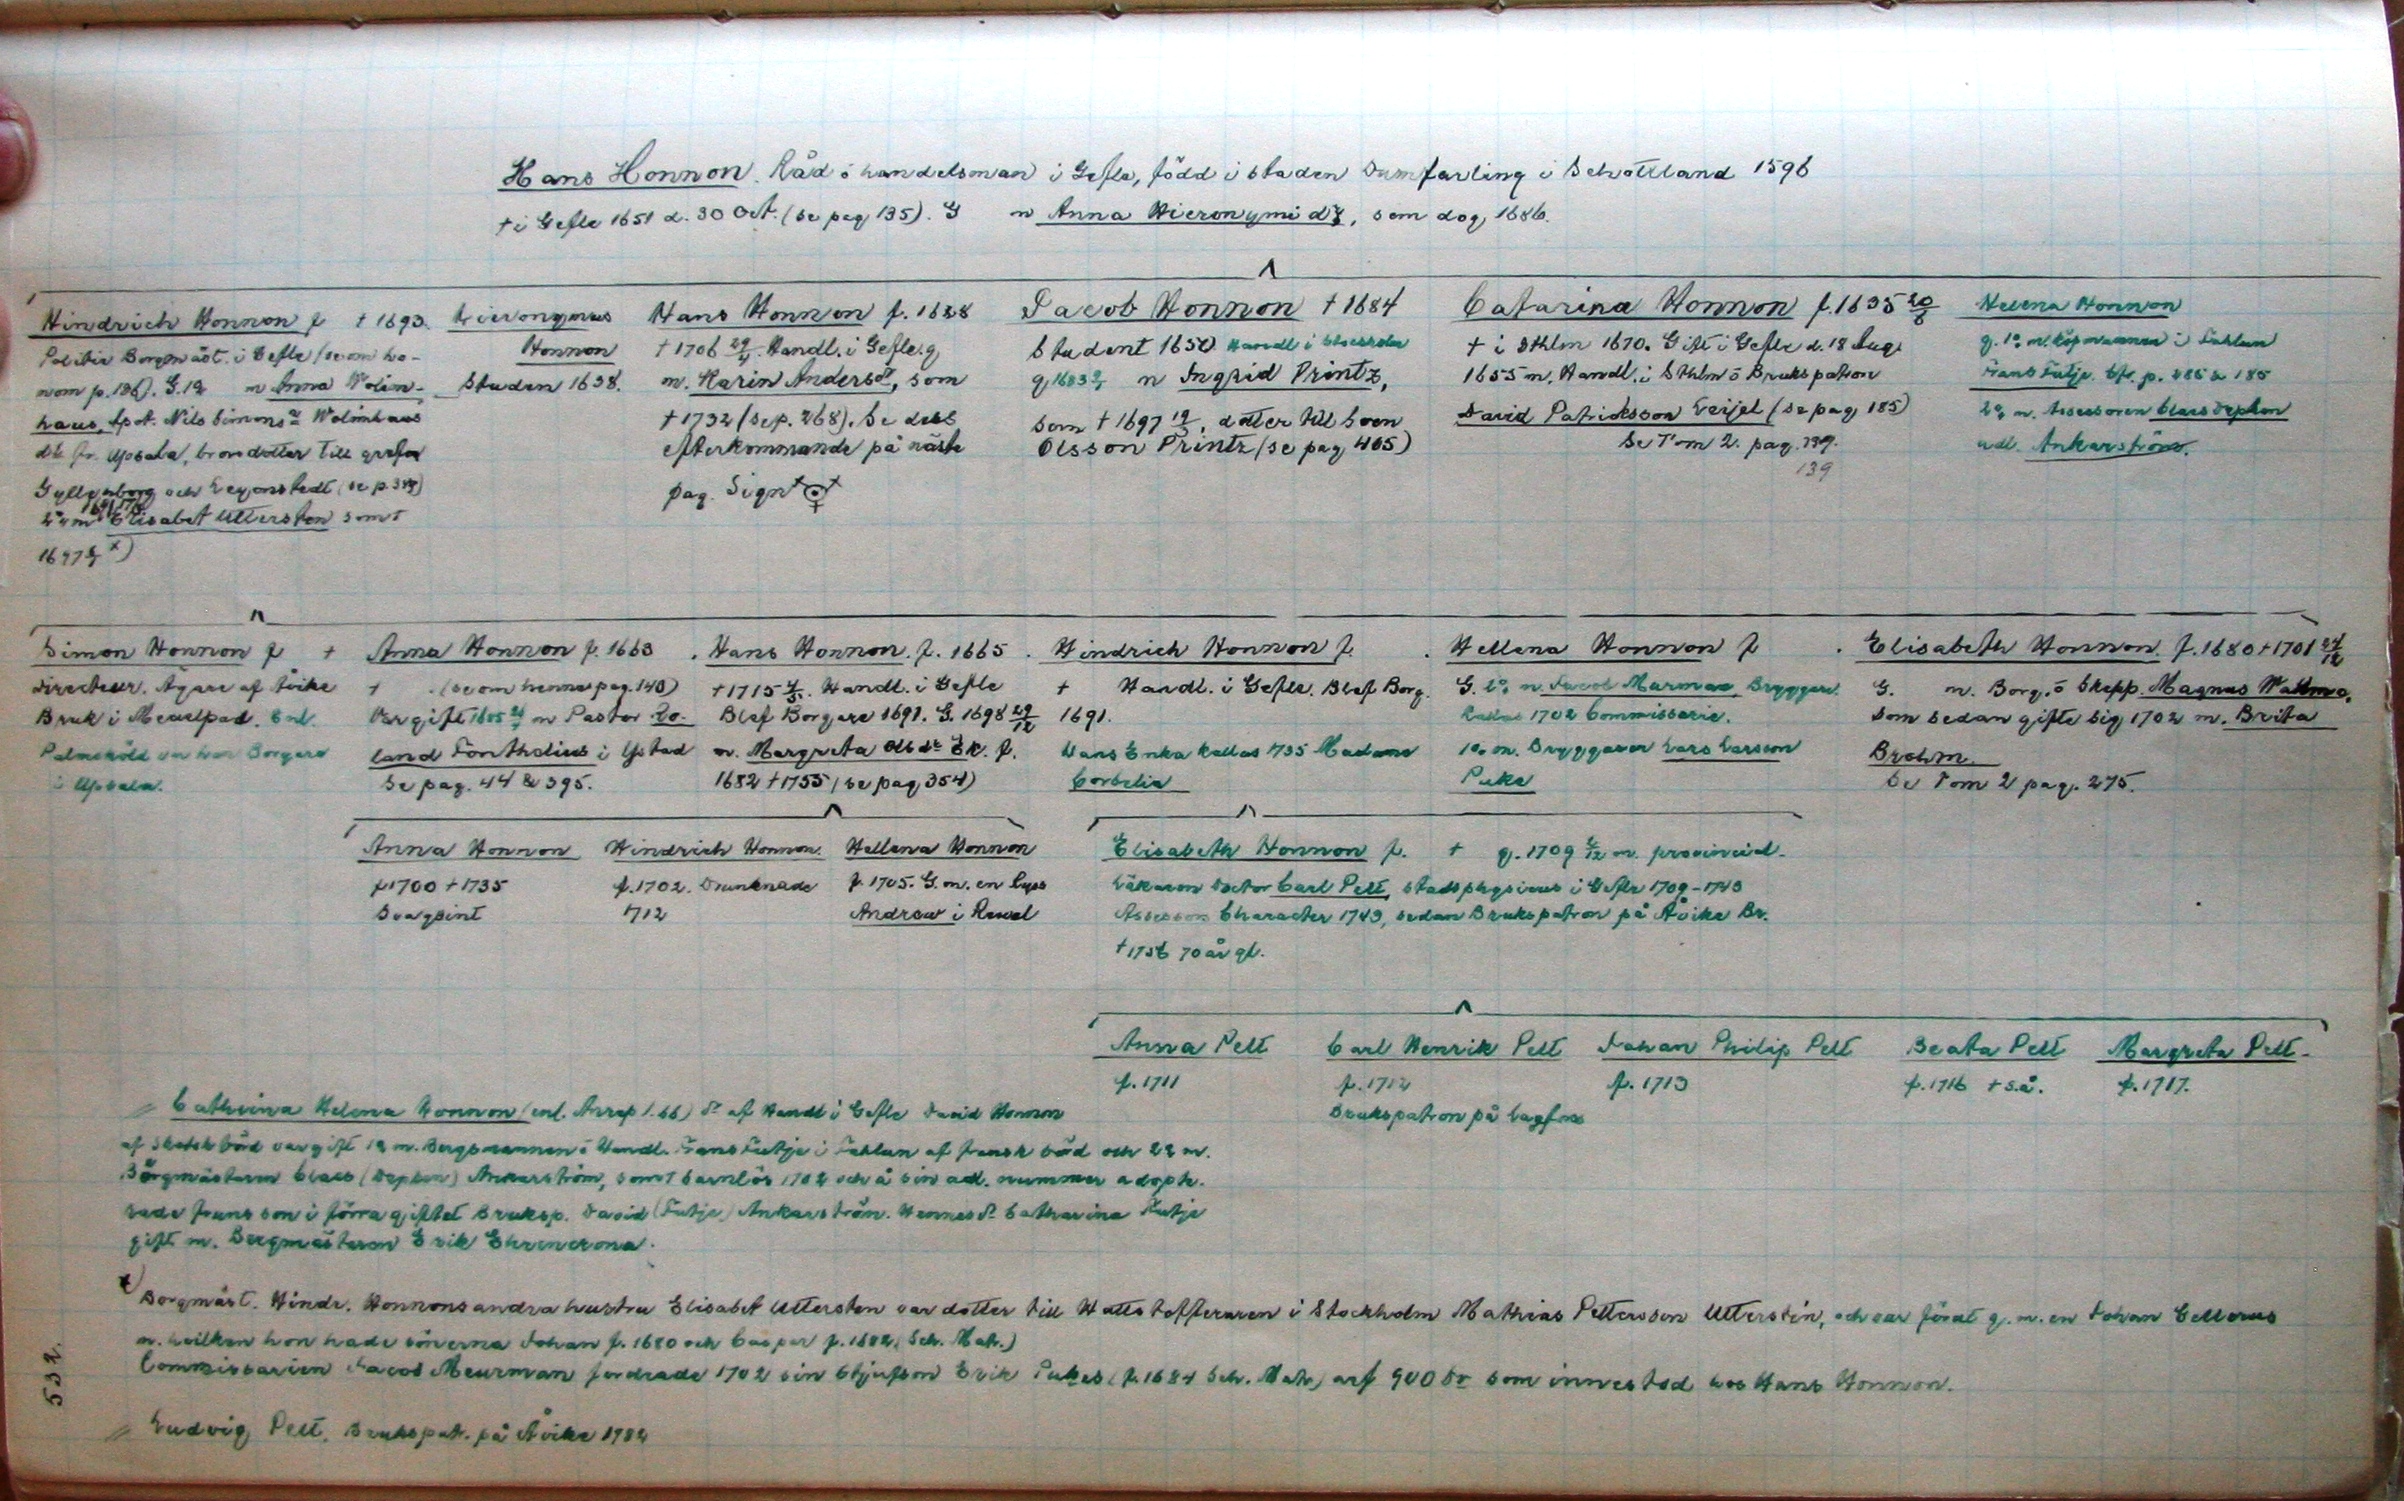 Hans Honnon. Råd ö handelsman i Gefle, född i staden Dumfarling i Schottland 1596
† i Gefle 1651 d. 30 Oct. (se pag 135). G m Anna Hieronymi dr, som dog 1686.
Hindrich Honnon f † 1693.
Politie Borgmäst. i Gefle (se om ho-
nom p. 186). G. 1º m Anna Wolim-
haus, Apot. Nils Simons Wolimhaus
dr fr. Upsala, brorsdotter till grefve
Gyllenborg och Leyonstedt (se p.
2º m Elisabet Uttersten som †
1697 x)
Hieronymus
Honnon
Studen 1638.
Hans Honnon f. 1628
† 1706 29/4. Handl. i Gefle. g
m. Karin Andersdr, som
† 1732 (se p. 268). Se dess
efterkommande på näste
pag. Sign
Jacob Honnon † 1684
Student 1650 Handl i Stockholm
g 1683 m Ingrid Printz,
som † 1697, dotter till Sven
Olsson Printz (se pag 405)
Catarina Honnon f. 1635 20/8
† i Sthlm 1670. Gift i Gefle d. 18 Aug.
1655 m. Handl. i Sthlm ö Brukspatron
David Patricksson Leijel (se pag 185)
Se Tom 2. pag. 139.
139
Helena Honnon
g. 1º m. Köpmannen i Fahlun
Frans Futje. Cfr. p. 285 & 185
2º m. Assessoren Claes Depken
adl. Ankarström.
Simon Honnon f †
Directeur. Ägare af Åvike
Bruk i Medelpad. Enl.
Palmsköld var han Borgare
i Upsala.
Anna Honnon f. 1663
† (se om henne pag. 140)
Var gift 1685 m Pastor Ro-
land Fonthelius i Ystad
Se pag. 44 & 395.
Hans Honnon. f. 1665
† 1715 4/5. Handl. i Gefle
Blef Borgare 1691. G. 1698 29/12
m. Margreta Olsdr Ek. f.
1682 † 1755 (se pag 354)
Hindrich Honnon f.
† Handl. i Gefle. Blef Borg.
1691.
Hans Enka kallas 1735 Madame
Corbelia
Hellena Honnon f
G. 2º m. Jacob Murman, Bryggare.
Kallas 1702 Commissarie.
1º m. Bryggaren Lars Larsson
Puke
Elisabeth Honnon f. 1680 † 1701 24/12
G. m. Borg. ö Skepp. Magnus Wallmo,
som sedan gifte sig 1702 m. Brita
Brohm.
Se Tom 2 pag. 275.
Anna Honnon
f 1700 † 1735
Svagsint
Hindrich Honnon
f. 1702. Drunknade
712
Hellena Honnon
f. 1705. G. m. en
Andrew i Rewel
Elisabeth Honnon f. † g. 1709 m. provincial-
Läkaren Doctor Carl Pelt, stadsphysicus i Gefle 1709-1743
Assessors Character 1743, sedan Brukspatron på Åvike Br.
† 1756 70 år gl.
Anna Pelt
f. 1711
Carl Henrik Pelt
f. 1712
Brukspatron på Lagfors
Johan Philip Pelt
f. 1713
Beata Pelt
f. 1716 † s.å.
Margreta Pelt.
f. 1717.
// Cathrina Helena Honnon (enl. Anrep 1.66) dr af Handl i Gefle David Honnon
af Skotsk börd var gift 1º m. Bergsmannen ö Handl. Frans Futje i Fahlun af fransk börd och 2º m.
Borgmästaren Claes (Depken) Ankarström, som † barnlös 1702 och å sin adl. nummer adopte-
rade fruns son i förra giftet Bruksp. David (Futje) Ankarström. Hennes dr Catharina Futje
gift m. Bergmästaren Erik Ehrencrona.
x) Borgmäst. Hindr. Honnons andra hustru Elisabet Uttersten var dotter till Hattstofferaren i Stockholm Mathias Pettersson Utterstén, och var förut g. m. en Johan Cellerus
m. hvilken hon hade sönerna Johan f. 1680 och Caspar f. 1682. (Sch. Matr.)
Commissarien Jacob Meurman fordrade 1702 sin Styfson Erik Pukes (f. 1684 Sch. Matr.) arf 900 Dr som innestod hos Hans Honnon.
// Ludvig Pelt. Brukspatr. på Åvike 1782
532.